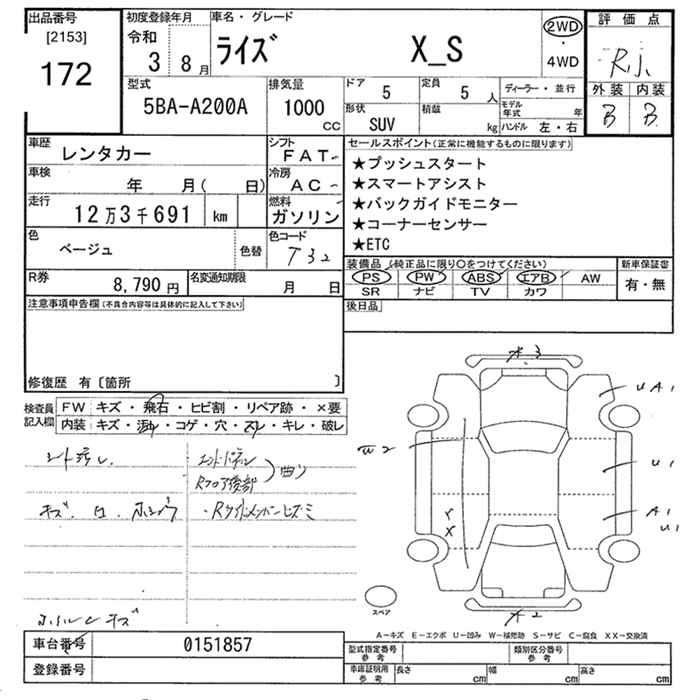 出品番号
[2153]
172
初度登録年月
令和
3年 8月
車名・グレード
ライズ X_S
2WD
・
4WD
評価点
R小
外装 内装
B B
型式
5BA-A200A
排気量
1000
CC
ドア 5
定員 5 人
ディーラー・並行
形状
SUV
積載
kg
モデル年式 年
ハンドル 左・右
車歴
レンタカー
シフト
FAT
車検
年 月( 日)
冷房
AC
走行
12万3千691 km
燃料
ガソリン
色
ベージュ
色替
色コード
T32
R券
8,790 円
名変通知期限
月 日
セールスポイント(正常に機能するものに限ります)
★プッシュスタート
★スマートアシスト
★バックガイドモニター
★コーナーセンサー
★ETC
装備品 (純正品に限り○をつけてください)
PS PW ABS エアB AW
SR ナビ TV カワ
新車保証書
有・無
後日品
注意事項申告欄(不具合内容等は具体的に記入して下さい)
修復歴 有〔箇所 〕
検査員
記入欄
FW キズ・飛石・ヒビ割・リペア跡・×要
内装 キズ・汚れ・コゲ・穴・スレ・キレ・破レ
シート汚レ
エンドパネル
Rフロア後部
曲り
キズ、凹、
・Rサイドメンバーヒズミ
ホイルキズ
3
UA1
2
U1
A1
U1
X
2
スペア
A-キズ E-エクボ U-凹み W-補修跡 S-サビ C-腐食 XX-交換済
車台番号
0151857
登録番号
型式指定番号
参考
類別区分番号
参考
車庫証明用
参考
長さ cm
幅 cm
高さ cm